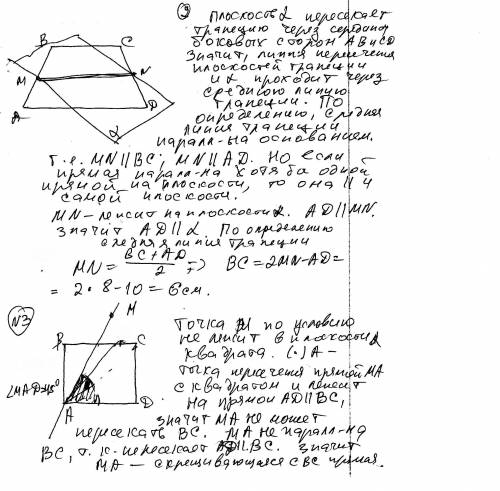 ③ Плоскость α пересекает
трапецию через середины
боковых сторон AB и CD
значит, линия пересечения
плоскостей трапеции
и α проходит через
среднюю линию
трапеции. По
определению, средняя
линия трапеции
паралл-на основанием.
B C
M N
A D
α
т.е. MN||BC, MN||AD. Но если
прямая паралл-на хотя бы одной
прямой на плоскости, то она ||
самой плоскости.
MN – лежит на плоскости α. AD||MN.
значит AD||α. По определению
средняя линия трапеции
MN = BC+AD / 2 => BC = 2MN-AD =
= 2·8-10 = 6 см.
№3
M
B C
∠MAD=45°
A D
Точка M по условию
не лежит в плоскости
квадрата. (·) A –
точка пересечения прямой MA
с квадратом и лежит
на прямой AD||BC,
значит MA не может
пересекать BC. MA не паралл-на
BC, т.к. пересекает AD||BC. значит
MA – скрещивающаяся с BC прямая.